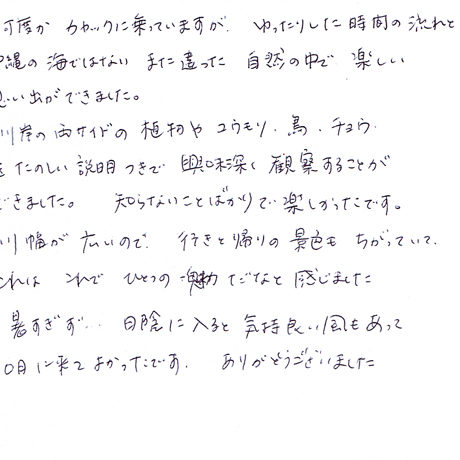 何度か カヤックに乗っていますが、ゆったりした時間の流れと
沖縄の海ではない また違った 自然の中で 楽しい
思い出ができました。
川岸の両サイドの 植物や コウモリ、鳥、チョウ
を たのしい説明つきで 興味深く 観察することが
できました。 知らないことばかりで 楽しかったです。
川幅が 広いので、行きと帰りの 景色も ちがっていて、
これは これで ひとつの 魅力だなと 感じました
暑すぎず… 日陰に入ると 気持良い風もあって
日に来て よかったです。 ありがとうございました